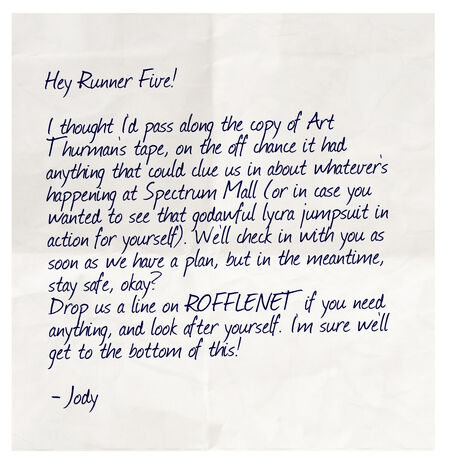 Hey Runner Five!
I thought I'd pass along the copy of Art
Thurman's tape, on the off chance it had
anything that could clue us in about whatever's
happening at Spectrum Mall (or in case you
wanted to see that godawful lycra jumpsuit in
action for yourself). We'll check in with you as
soon as we have a plan, but in the meantime,
stay safe, okay?
Drop us a line on ROFFLENET if you need
anything, and look after yourself. I'm sure we'll
get to the bottom of this!
- Jody